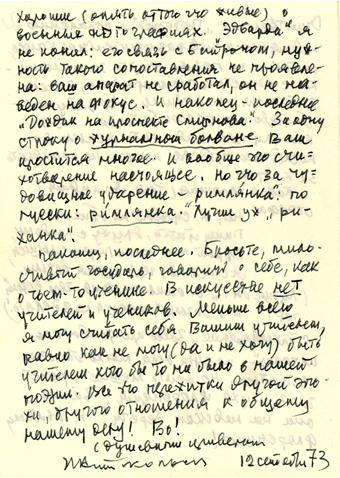 хорошие (опять оттого что живые) о
военных фотографиях. "Эдварда" я
не понял: его связь с Бейроном, нуж-
ность такого сопоставления не проявле-
на: ваш аппарат не сработал, он не на-
веден на фокус. И наконец - последнее
"Дождик на проспекте Смирнова." За одну
строку о журнальном болване Вам
простится многое. И вообще это сти-
хотворение настоящее. Но что за чу-
довищное ударение - римлянка": по
русски: римлянка. "Лучше уж "ри-
Наконец, последнее. Бросьте, мило-
стивый государь, говорить о себе, как
о чьем-то ученике. В искусстве нет
учителей и учеников. Меньше всего
я могу считать себя Вашим учителем,
равно как не могу (да и не хочу) быть
учителем кого бы то ни было в нашей
поэзии. Все это пережитки другой эпо-
хи, другого отношения к общему
нашему делу! Во!
С душевным приветом
12 сентября 73